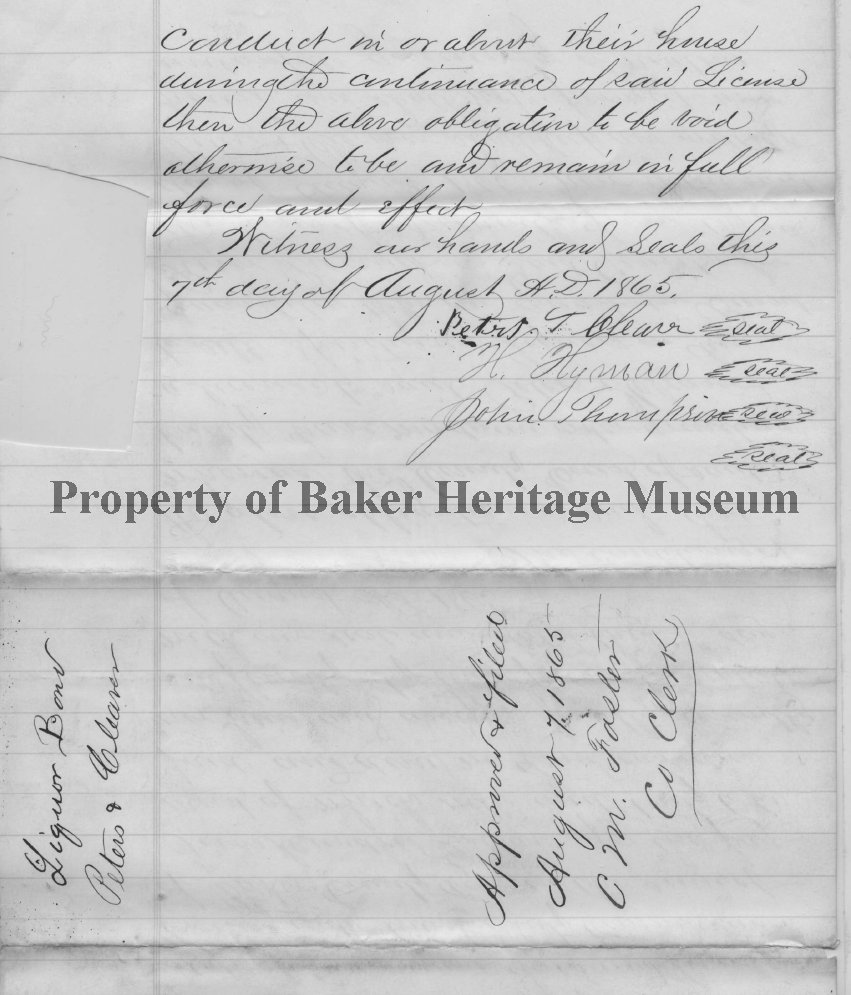 Conduct in or about their house
during the continuance of said License
then the above obligation to be void
otherwise to be and remain in full
force and effect
Witness our hands and Seals this
7th day of August A.D. 1865.
Peters & Cleaver seal
H. Hyman seal
John Thompson seal
seal
Property of Baker Heritage Museum
Liquor Bond
Peters & Cleaver
Approved & filed
August 7, 1865
C M. Foster
Co Clerk